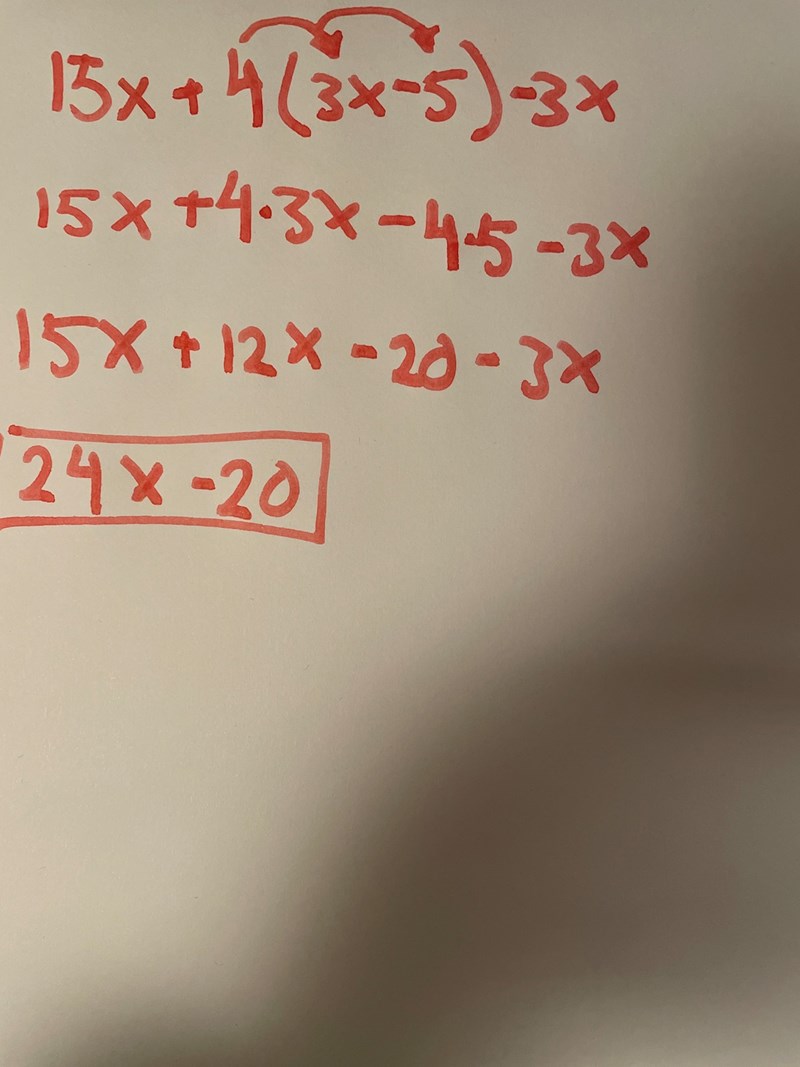 15x + 4(3x-5)-3x
15x +4·3x - 4·5 - 3x
15x + 12x - 20 - 3x
24x - 20